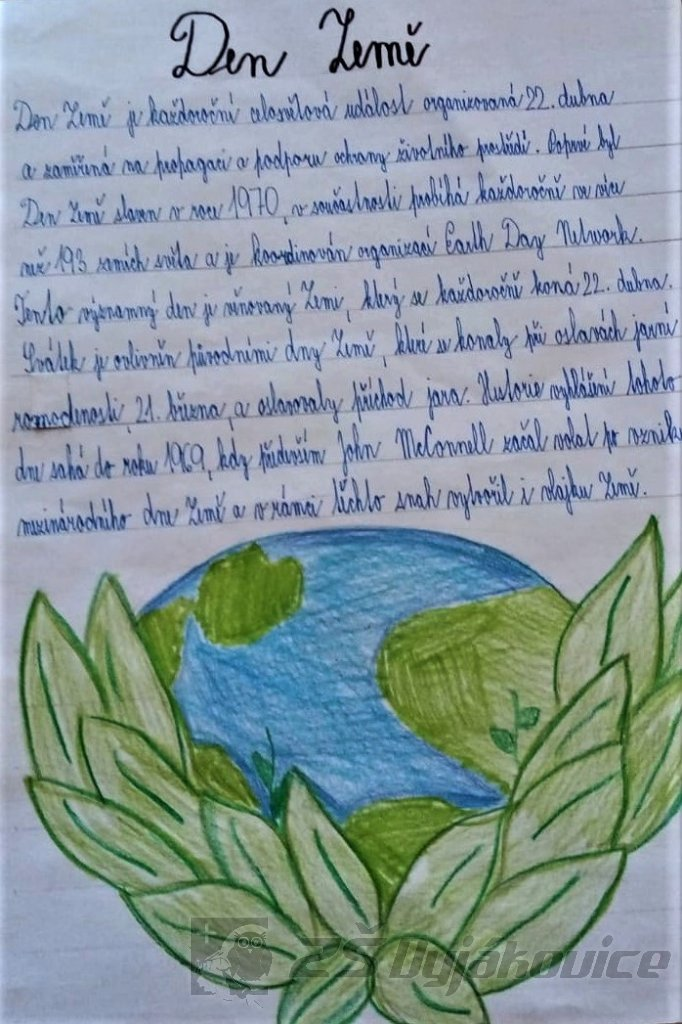 Den Země
Den Země je každoroční celosvětová událost organizovaná 22. dubna
a zaměřená na propagaci a podporu ochrany životního prostředí. Poprvé byl
Den Země slaven v roce 1970, v součastnosti probíhá každoročně ve více
než 193 zemích světa a je koordinován organizací Earth Day Network.
Tento významný den je věnovaný Zemi, který se každoročně koná 22. dubna.
Svátek je ovlivněn původními dny Země, které se konaly při oslavách jarní
rovnodenosti, 21. března, a oslavovaly příchod jara. Historie vyhlášení tohoto
dne sahá do roku 1969, kdy především John McConnell začal volat po vzniku
mezinárodního dne Země a v rámci těchto snah vytvořil i vlajku Země.
ZŠ Dyjákovice